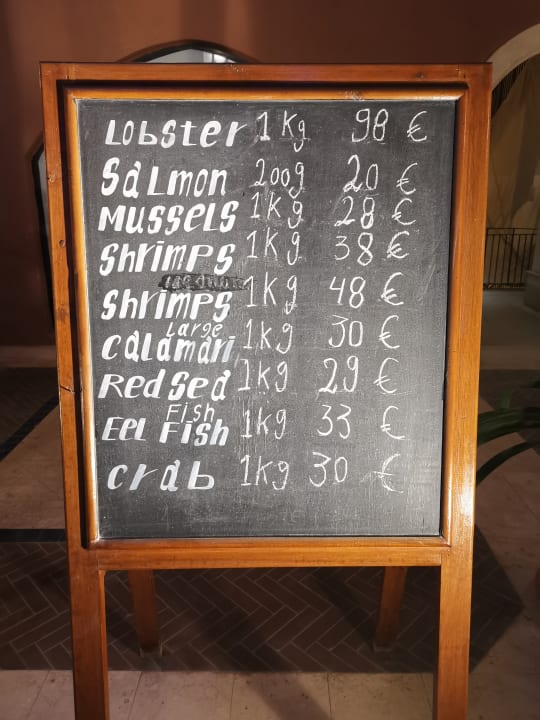 Lobster 1 Kg 98 €
Salmon 200g 20 €
Mussels 1Kg 28 €
Shrimps 1Kg 38 €
Shrimps 1Kg 48 €
Large
Calamari 1Kg 30 €
Red Sea 1kg 29 €
Fish
Eel Fish 1Kg 33 €
Crab 1Kg 30 €